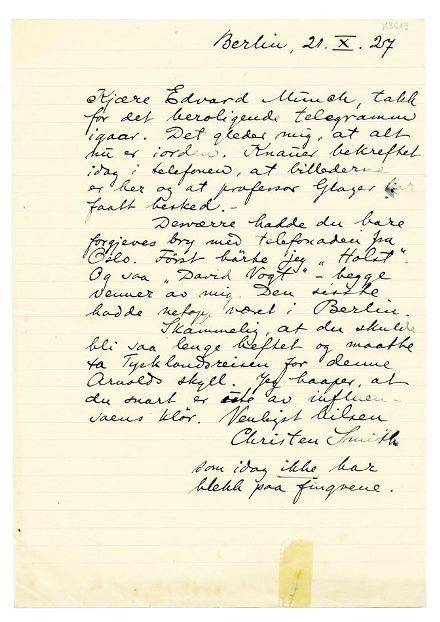 K3613
Berlin, 21. X. 27
Kjære Edvard Munch, takk
for det beroligende telegramm
igaar. Det gleder mig, at alt
nu er iorden. Knauer bekreftet
idag i telefonen, at billederne
er her og at professor Glaser har
faatt besked. –
Desværre hadde du bare
forgjeves bry med telefonaden fra
Oslo. Först hörte jeg „Holst".
Og saa „David Vogt" – begge
venner av mig. Den sisste
hadde netop været i Berlin.
Skammelig, at du skulde
bli saa lenge heftet og maatte
ta Tysklandsreisen for denne
Arnolds skyll – Jeg haaper, at
du snart er ute av influen-
saens klör. Venligst hilsen
Christen Smith
som idag ikke har
blekk paa fingrene.